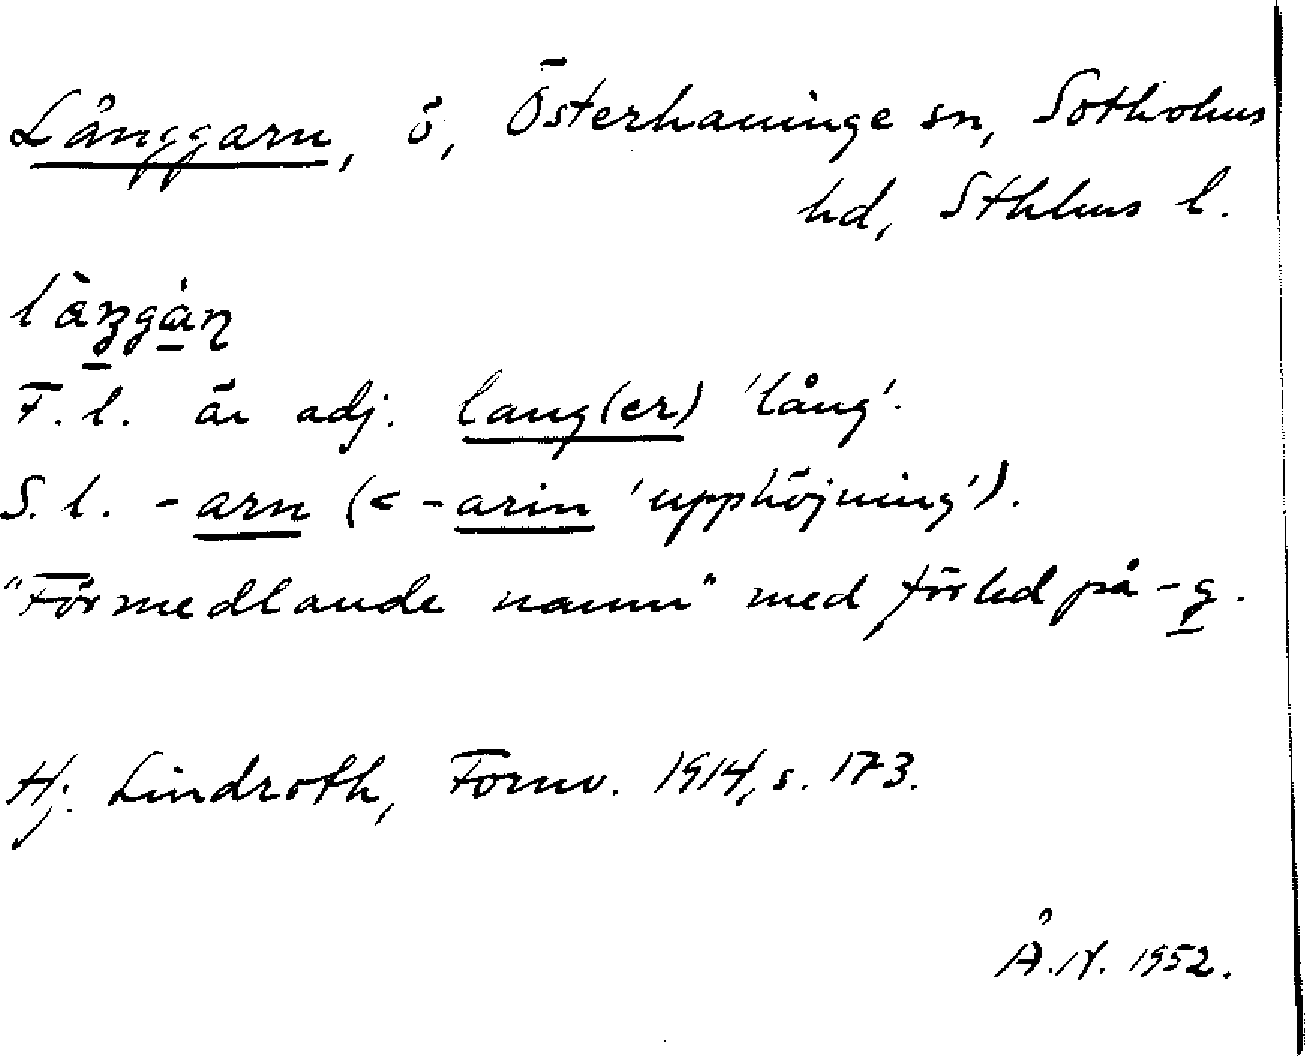 Långgarn, ö, Österhaninge sn, Sotholms
hd, Sthlms l.
F. l. är adj. lang(er) 'lång'.
S. l. -arn (< -arin 'upphöjning').
"Förmedlande namn" med förled på -g.
Hj. Lindroth, Fornv. 1914, s. 173.
Å.N. 1952.